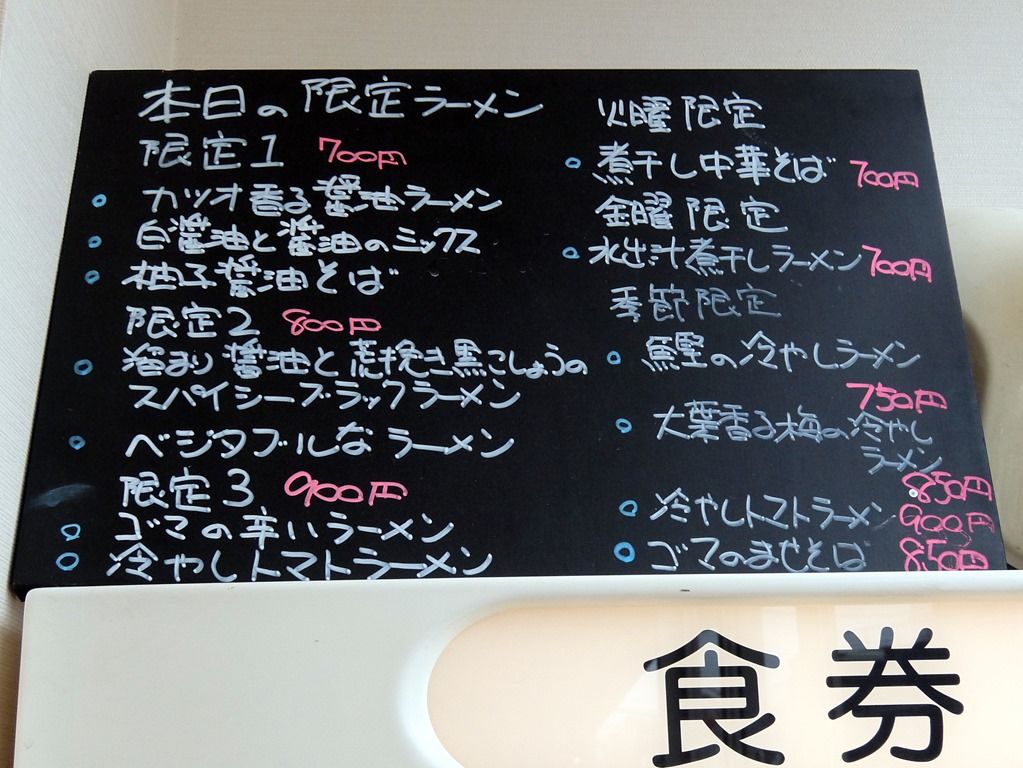 本日の限定ラーメン
限定1 700円
カツオ香る醤油ラーメン
白醤油と醤油のミックス
柚子醤油そば
限定2 800円
溜まり醤油と荒挽き黒こしょうの
スパイシーブラックラーメン
ベジタブルなラーメン
限定3 900円
ゴマの辛いラーメン
冷やしトマトラーメン
火曜限定
煮干し中華そば 700円
金曜限定
水出汁煮干しラーメン 700円
季節限定
鰹の冷やしラーメン
750円
大葉香る梅の冷やし
ラーメン
850円
冷やしトマトラーメン 900円
ゴマのまぜそば 850円
食券